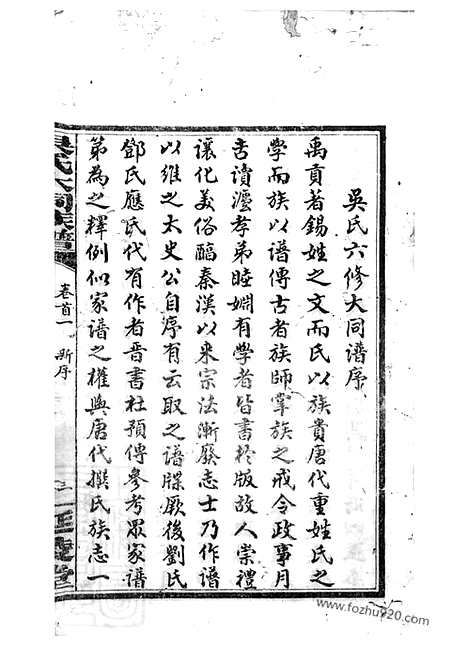 吳氏六修大同譜序
禹貢著錫姓之文而氏以族貴唐代重姓氏之
學而族以譜傳古者族師掌族之戒令政事月
吉讀灋孝弟睦婣有學者皆書於版故人崇禮
讓化美俗醕秦漢以來宗法漸廢志士乃作譜
以維之太史公自序有云取之譜牒厥後劉氏
鄧氏應氏代有作者晉書杜預傳參考眾家譜
第為之釋例似家譜之權輿唐代撰氏族志一
吳氏大同族譜
卷首一 新序
www.fozhu920.com